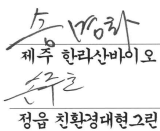 제주 한라산바이오
손주호
정읍 친환경대형그린